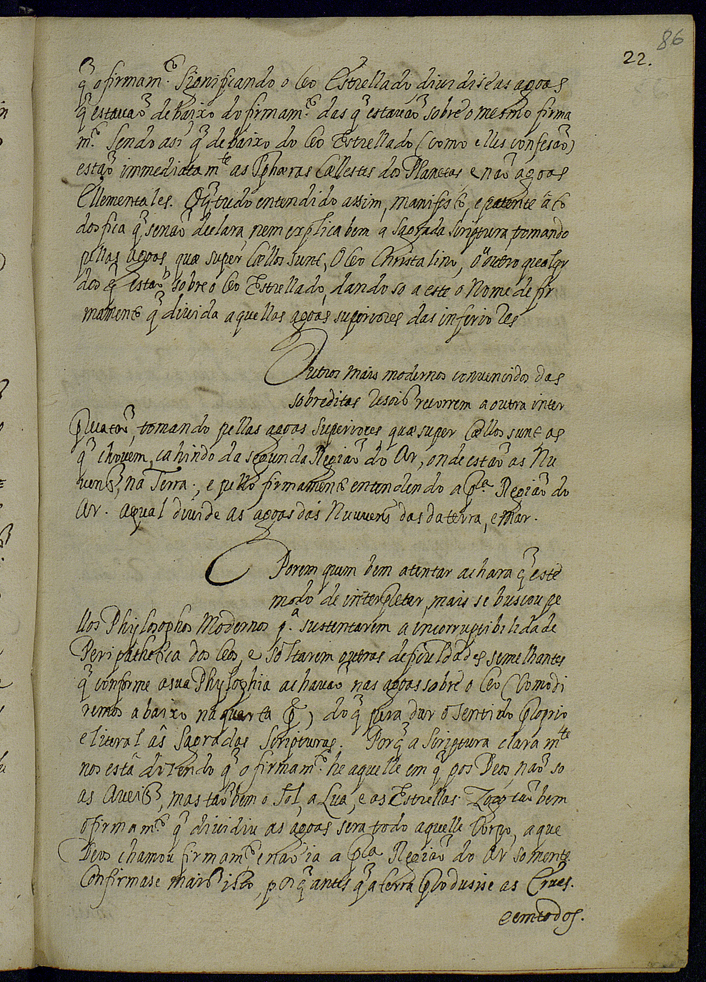 86
22.
q̃ o firmam.to significando o Ceo Estrellado dividisse as agoas
q̃ estavaõ debaixo do firmam.to das q̃ estavaõ sobre o mesmo firma
m.to Sendo asi q̃ debaixo do Ceo Estrellado (como elles confesaõ)
estaõ immediatam.te as Spharas Cællestes dos Planetas e naõ agoas
Ellementales. O q̃ tudo entendido assim, manifesto, e patente a to
dos fica q̃ senaõ declara, nem explica bem a Sagrada Scriptura tomando
pellas agoas quæ super Cællos sunt, o Ceo Christalino, o outro qualqr
Ceo q̃ está sobre o Ceo Estrellado, dando so a este o Nome de fir
mamento q̃ divida aquellas agoas superiores das inferiores
Outros mais modernos convencidos das
sobreditas resois recorrem a outra inter
pretaçaõ, tomando pellas agoas superiores quæ super Cællos sunt as
q̃ chovem, cahindo da segunda Regiaõ do Ar, onde estaõ as Nu
vens, na Terra, e pello firmamento entendendo a pra. Regiaõ do
Ar. aqual divide as agoas das Nuvens das da terra, e mar.
Porem quem bem atentar achara q̃ este
modo de interpretar mais se buscou pe
llos Phylosophos Modernos pa. sustentarem a incorruptibilidade
Peripathetica dos Ceos, e soltarem outras deficuldades semelhantes
q̃ conforme a sua Phylosophia achavaõ nas agoas sobre o Ceo (como di
remos abaixo na quarta p.) do q̃ pera dar o sentido proprio
e literal âs Sagradas Scripturas. Porq̃ a Scriptura clara m.te
nos está dizendo q̃ o firmam.to he aquelle em q̃ pos Deos naõ so
as Aveis, mas taõbem o Sol, a Lua, e as Estrellas. Logo taõbem
o firmam.to q̃ dividiu as agoas sera todo aquelle Corpo, a que
Deos chamou firmam.to e naõ ja a pra. Regiaõ do Ar somente.
Confirmase mais isto, porq̃ antes q̃ a terra produsise as Erves.
e em todos.